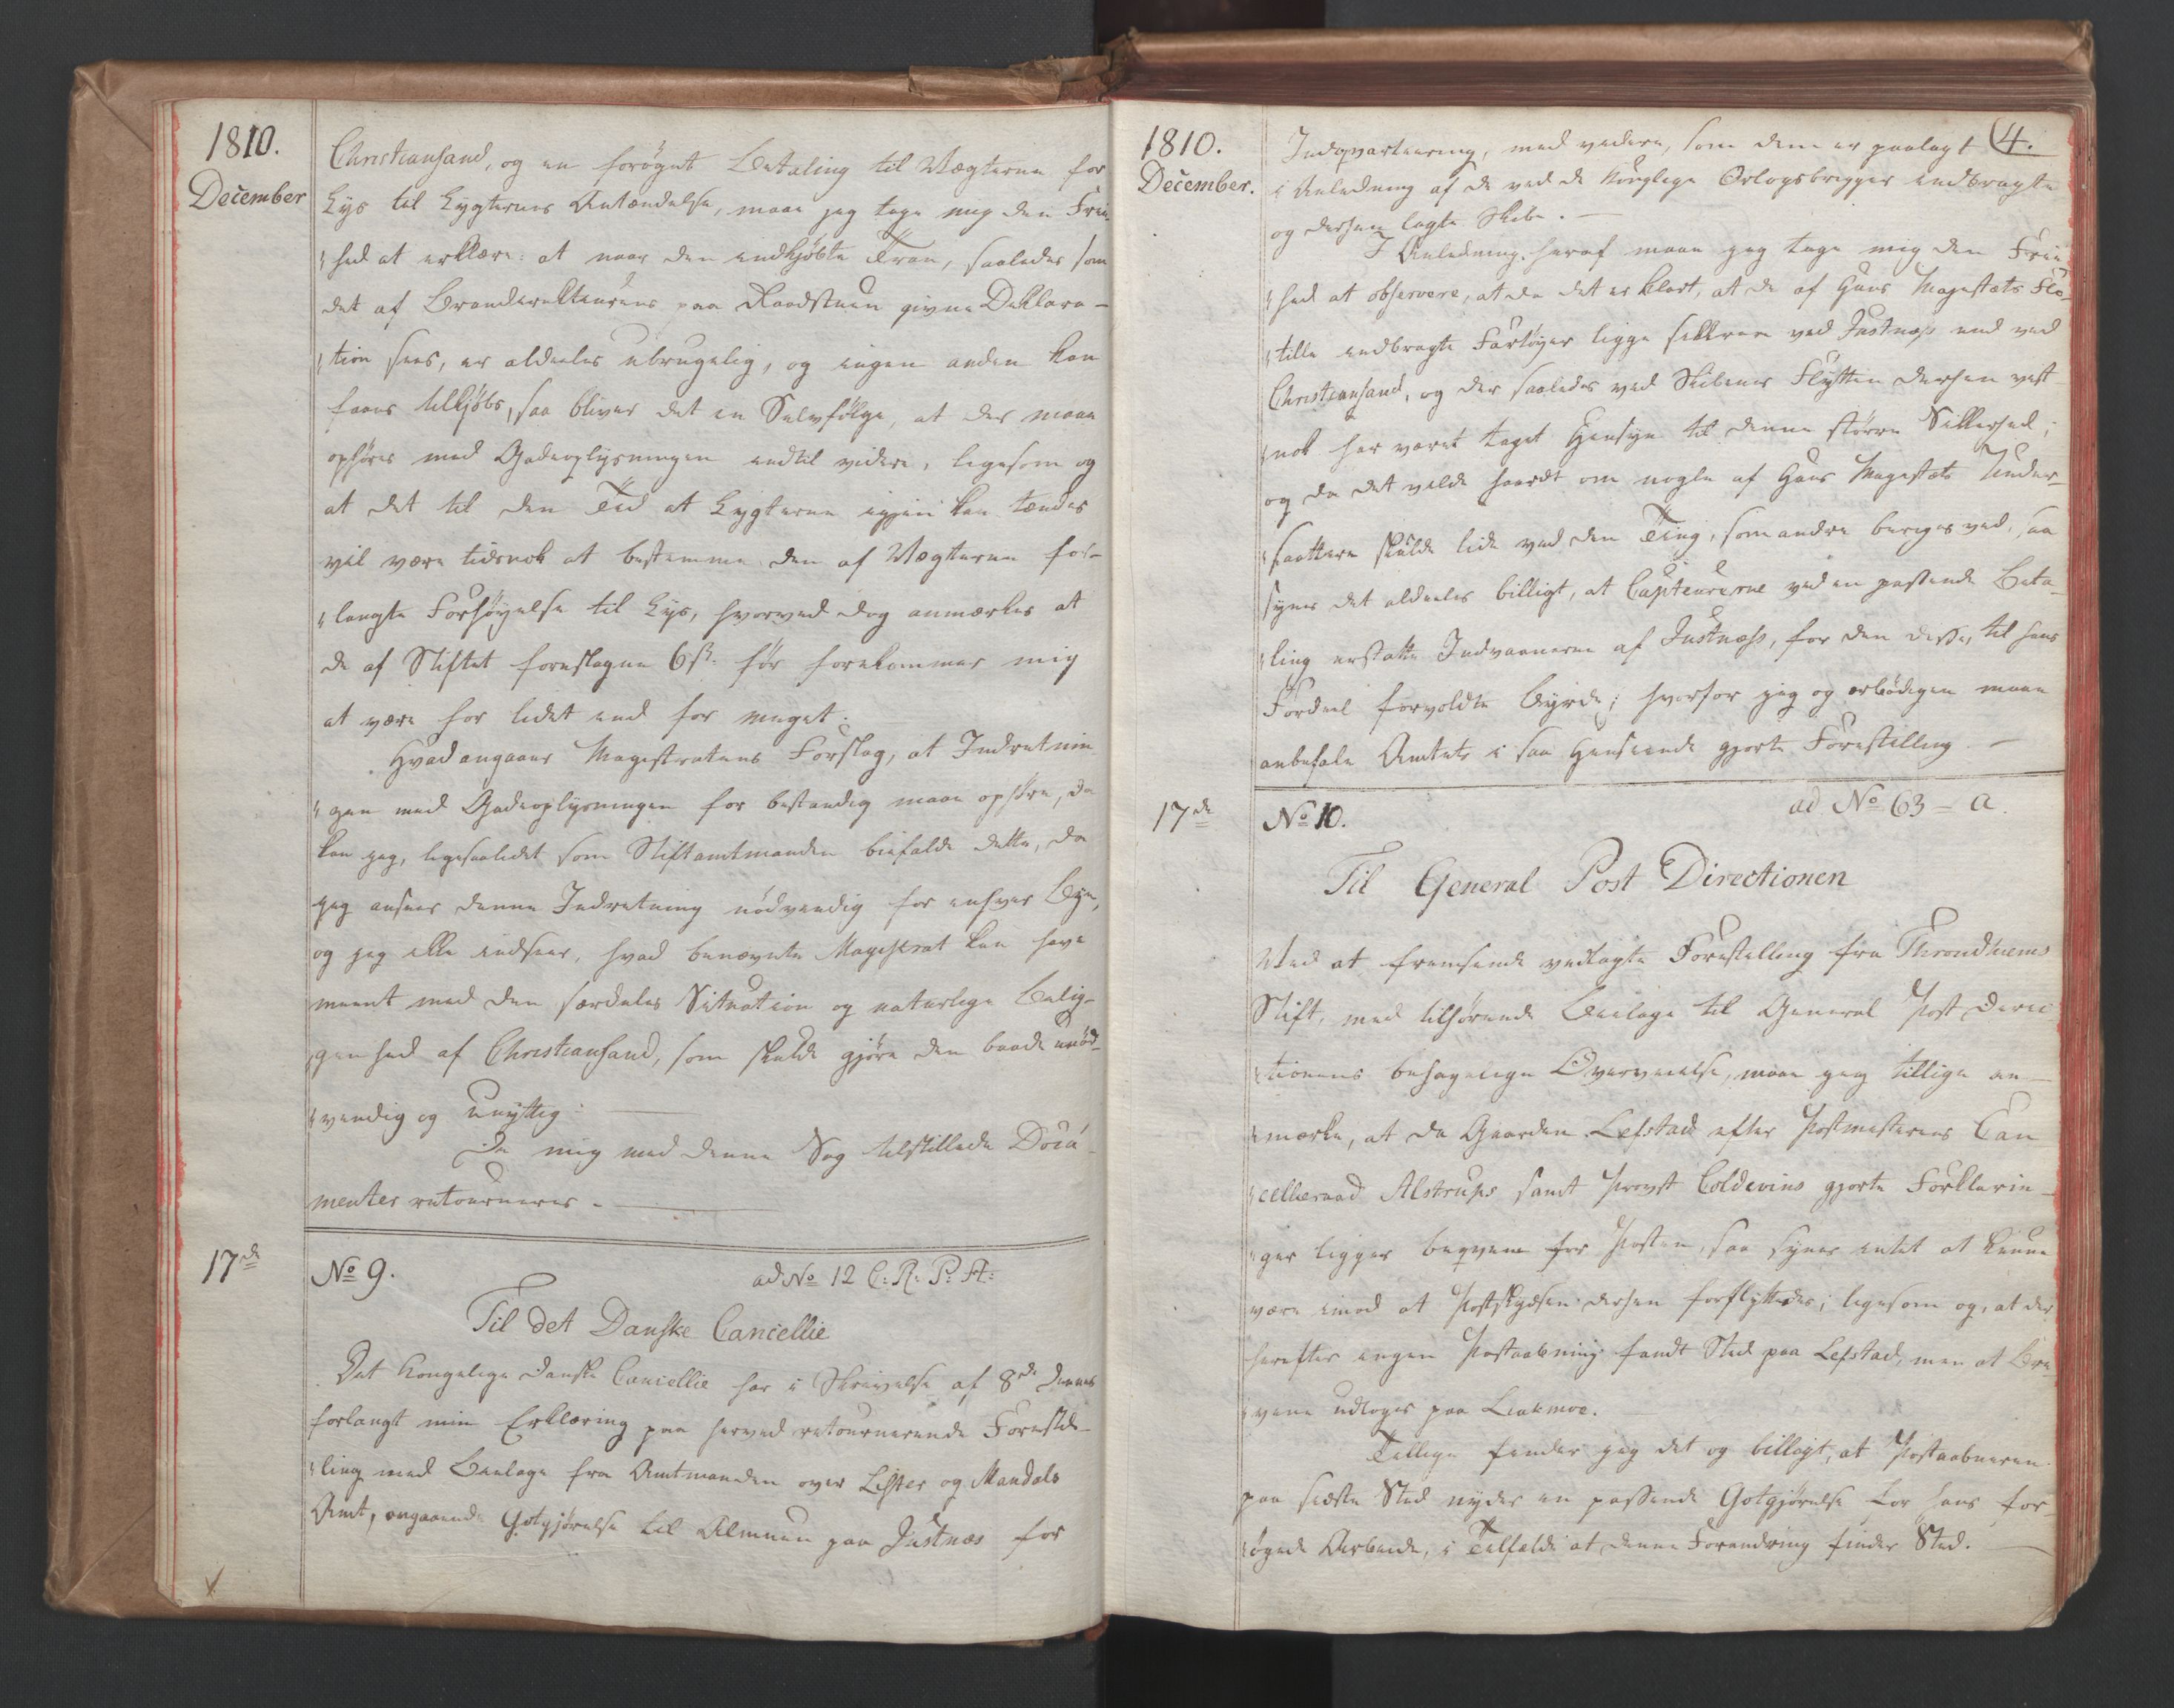 1810.
December
Christiansand, og en forøget Betaling til Vægterne for
Lys til Lygternes Antændelse, maae jeg tage mig den Frie-
hed at erklære: at naar den indkjøbte Tran, saaledes som
det af Branddirecteurens paa Raadstuen givne Deklara-
tion sees, er aldeeles ubrugelig, og ingen anden kan
faaes tilkjøbs, saa bliver det en Selvfølge, at der maae
ophøres med Gadeoplysningen indtil videre, ligesom og
at det til den Tid at Lygterne igjen kan tændes
vil være tidsnok at bestemme den af Vægterne for-
langte Forhøyelse til Lys, hvorved dog anmærkes at
de af Stiftet foreslagne 6 ß. før forekommer mig
at være for lidet end for meget.
Hvad angaaer Magistratens Forslag, at Indretnin-
gen med Gadeoplysningen for bestandig maae ophøre, da
kan jeg, ligesaalidet som Stiftamtmanden biefalde dette, da
jeg ansees denne Indretning nødvendig for enhver Bye,
og jeg ikke indseer, hvad benævnte Magistrat kan have
meent med den særdeles Situation og naturlige Belig-
genhed af Christiansand, som skulde gjøre den baade unød-
vendig og unyttig.
De mig med denne Sag tilstillede Docu-
menter retourneres.
17de
No 9.
ad No 12 C: R: P: A:
Til det Danske Cancellie
Det Kongelige danske Cancellie har i Skrivelse af 8de dennes
forlangt min Erklæring paa herved retournerende Forestil-
ling med Beilage fra Amtmanden over Lister og Mandals
Amt, angaaende Gotgjørelse til Almuen paa Justnæs for
1810.
December.
4.
Indqvarteering, med videre, som dem er paalagt
i Anledning af de ved de Konglige Orlogsbrigger indbragte
og derhen lagte Skibe.
I Anledning heraf maae jeg tage mig den Frie-
hed at observere, at da det er klart, at de af Hans Majestæts Flo-
tille indbragte Fartøyer ligge sikkrere ved Justnæss end ved
Christiansand, og der saaledes ved Skibenes Flytten derhen vist-
nok har været taget Hensyn til denne større Sikkerhed;
og da det vilde haardt om nogle af Hans Majestæts Under-
saattere skulde lide ved den Ting, som andre beriges ved, saa
synes det aldeeles billigt, at Capteurerne ved en passende Beta-
ling erstatte Indvaanerne af Justnæss, for den disse, til hans
Fordeel forvoldte Byrde; hvorfor jeg og ærbødigen maae
anbefale Amtets i saa Henseende gjorte Forestilling
17de
No 10.
ad No 63 - a.
Til General Post Directionen
Ved at fremsende vedlagte Forestilling fra Throndhiems
Stift, med tilhørende Beilage til General Post Direc-
tionens behagelige Overveielse, maae jeg tillige an-
mærke, at da Gaarden Lefstad efter Postmesterens Can-
celliераad Alstrups samt Provst Coldevins gjorte Forklarin-
ger ligger beqvem for Posten, saa synes intet at kunne
være imod at Postskydsen derhen forflyttedes; ligesom og, at der
herefter ingen Postaabning fandt Sted paa Lefstad, men at Bre-
vene udtoges paa Leakmoe.
Tillige finder jeg det og billigt, at Postaabneren
paa sidste Sted nyder en passende Gotgjørelse for hans for-
øgede Arbeide, i Tilfælde at denne Forandring finder Sted.